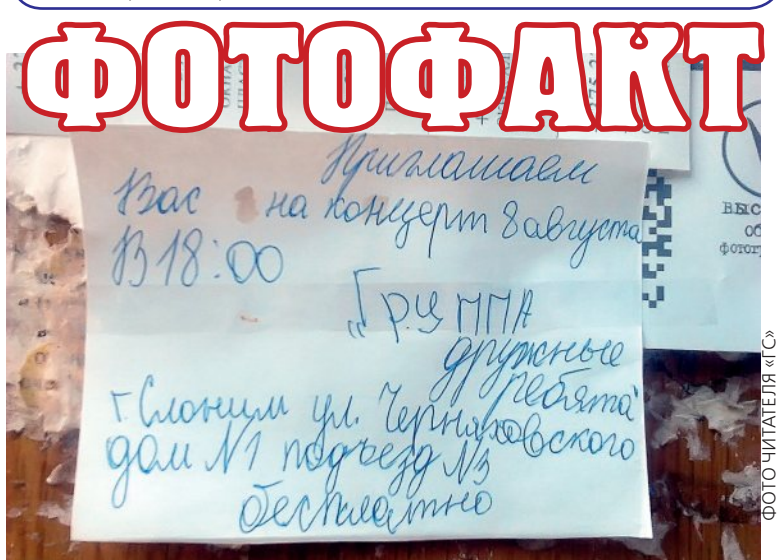 ФОТОФАКТ
Приглашаем
Вас на концерт 8 августа
В 18:00
„Группа
дружные
ребята"
г. Слоним ул. Черняховского
дом №1 подъезд №3
бесплатно
ФОТО ЧИТАТЕЛЯ «ГС»